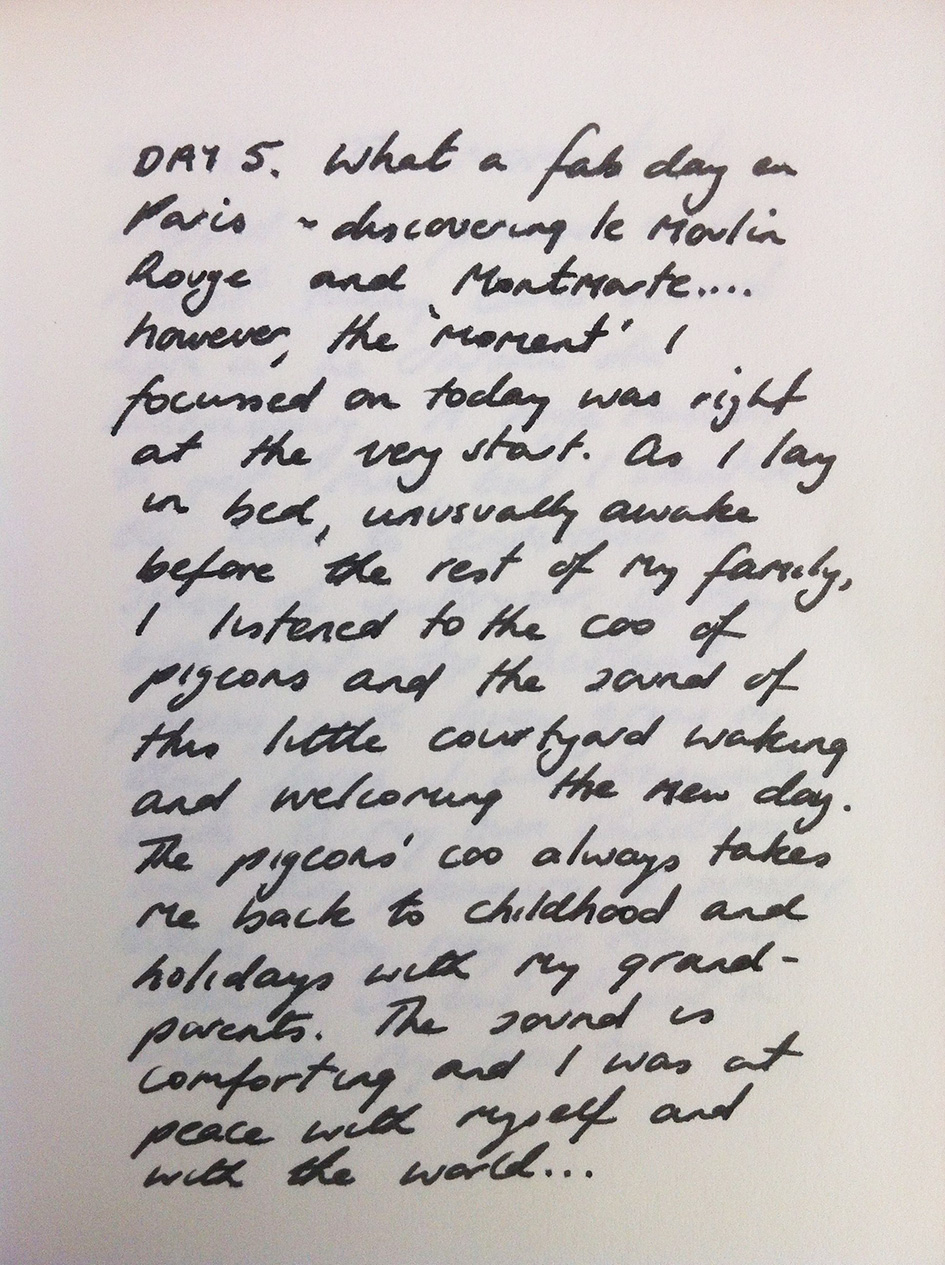 DAY 5. What a fab day in
Paris ~ discovering le Moulin
Rouge and Montmarte....
however, the 'moment' I
focussed on today was right
at the very start. As I lay
in bed, unusually awake
before the rest of my family,
I listened to the coo of
pigeons and the sound of
this little courtyard waking
and welcoming the new day.
The pigeons' coo always takes
me back to childhood and
holidays with my grand-
parents. The sound is
comforting and I was at
peace with myself and
with the world...